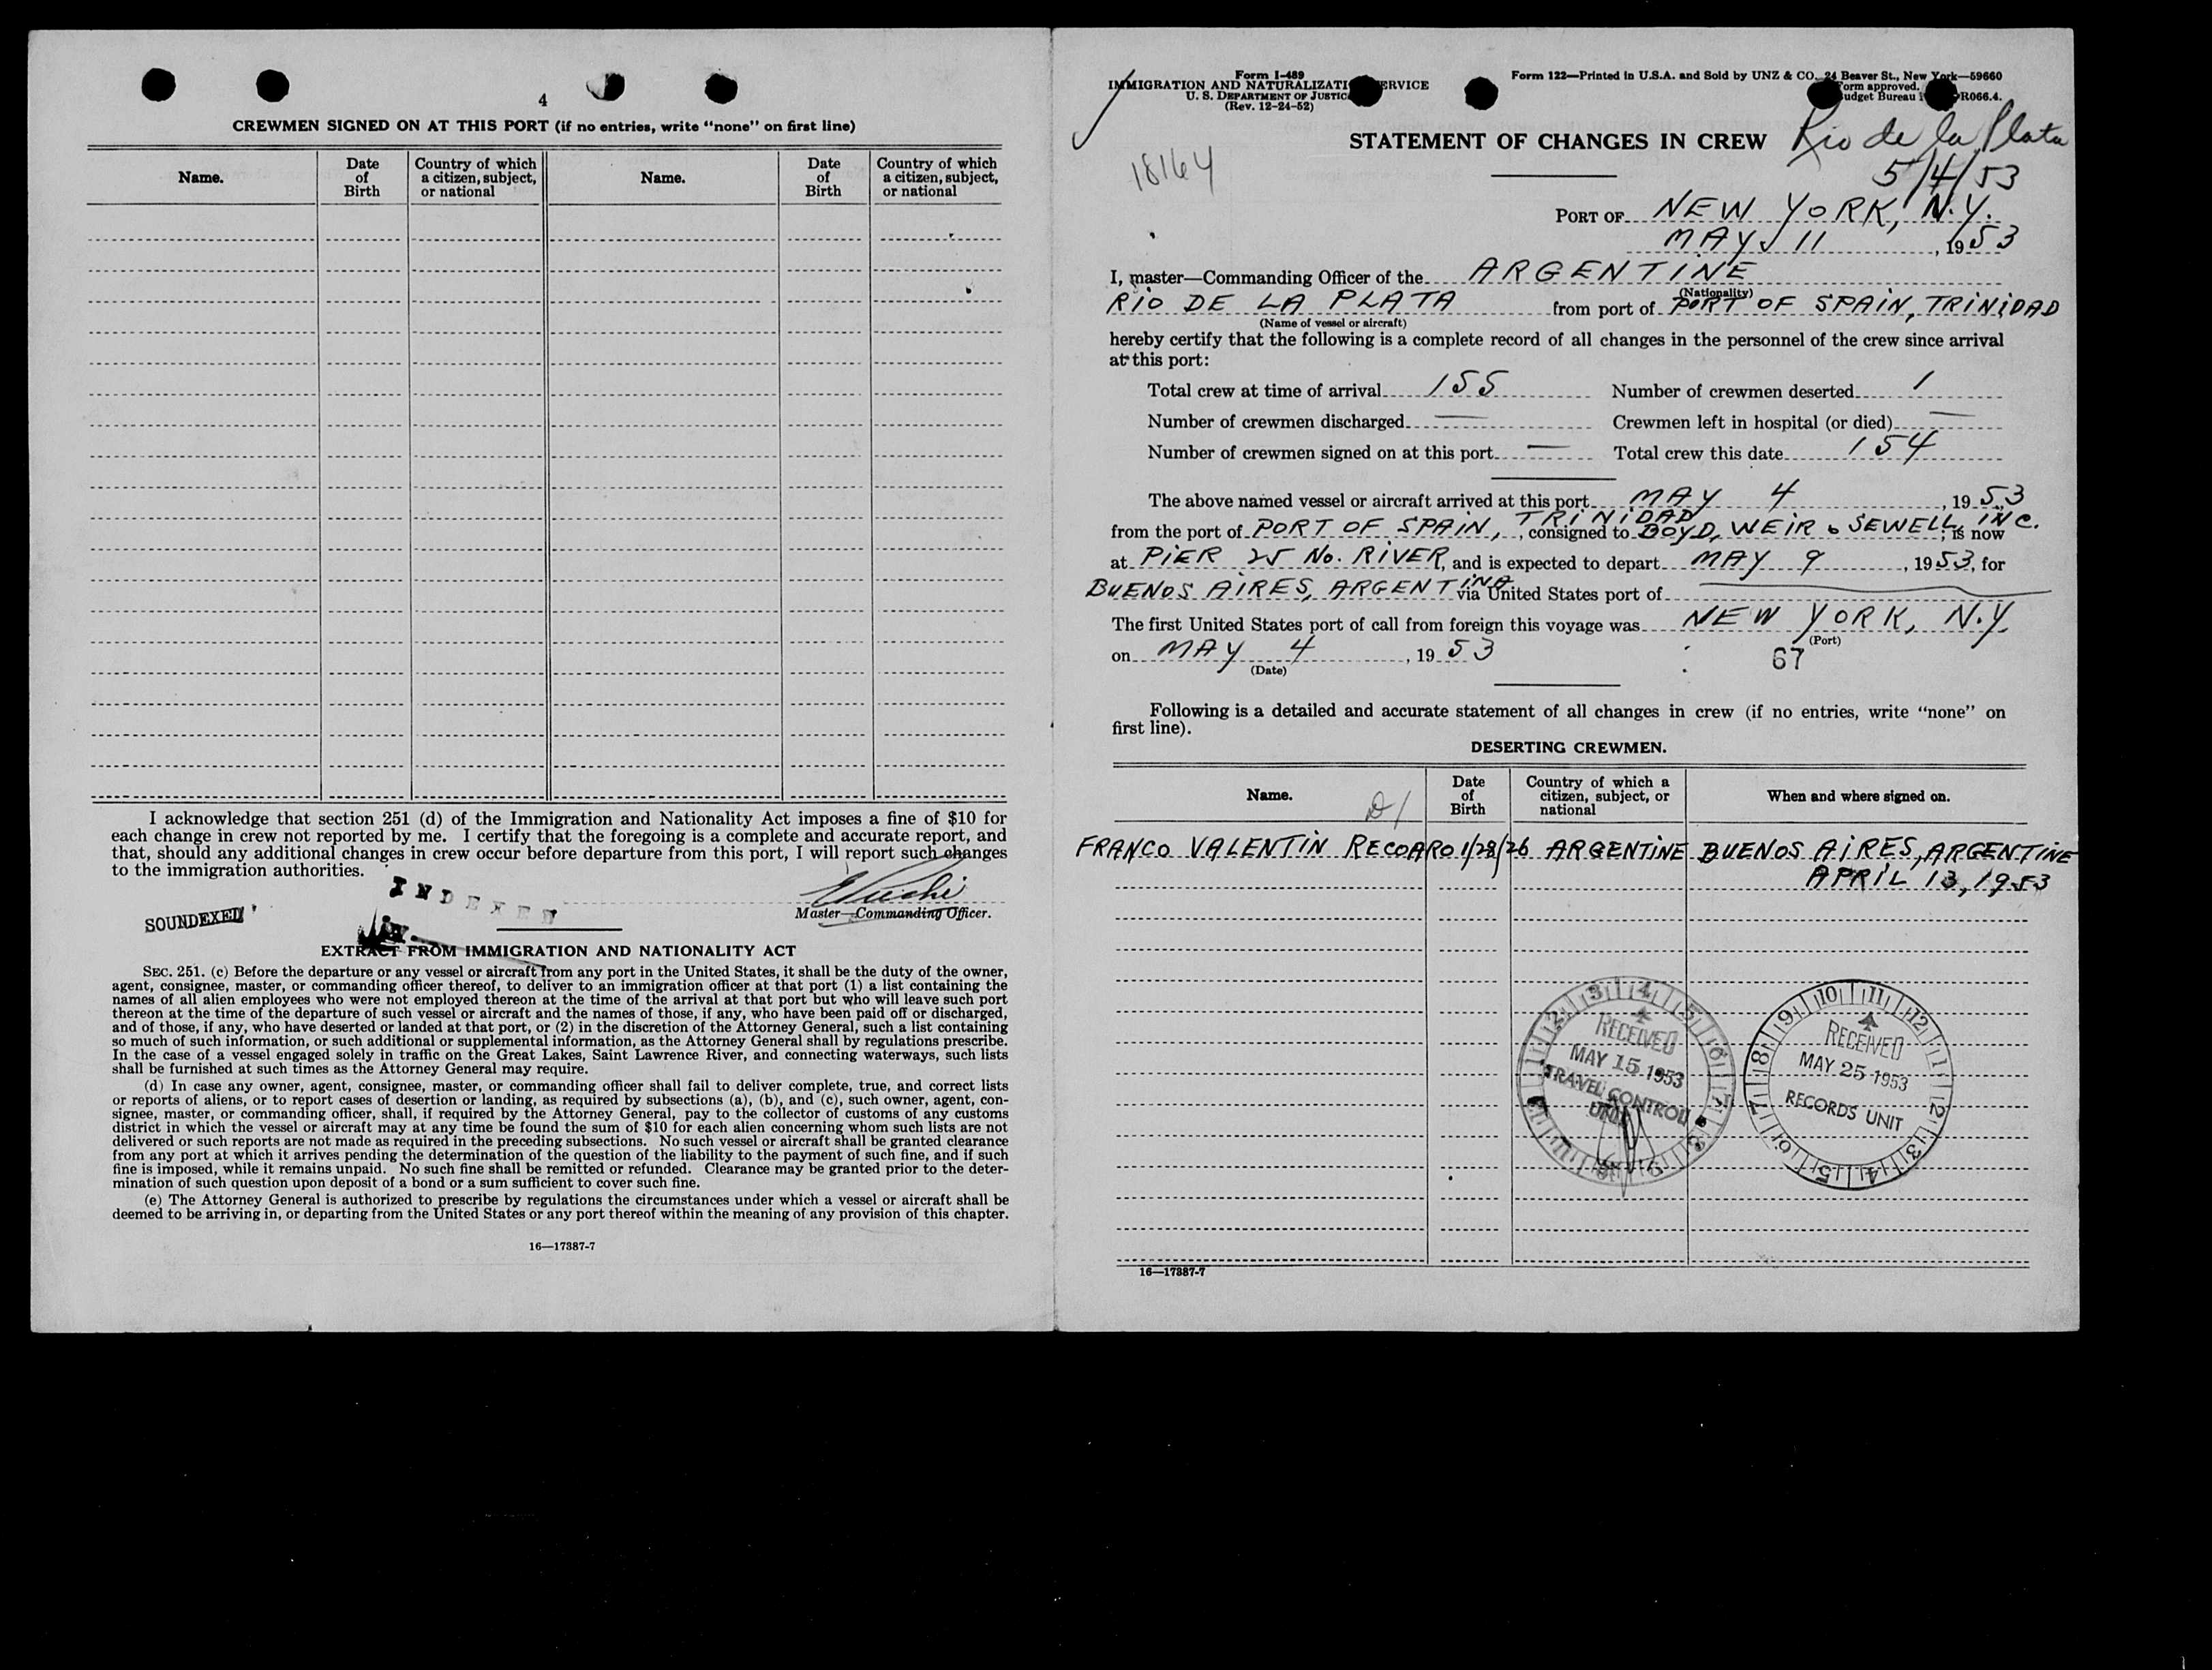 4
CREWMEN SIGNED ON AT THIS PORT (if no entries, write “none” on first line)
Name.
Date of Birth
Country of which a citizen, subject, or national
Name.
Date of Birth
Country of which a citizen, subject, or national
I acknowledge that section 251 (d) of the Immigration and Nationality Act imposes a fine of $10 for
each change in crew not reported by me. I certify that the foregoing is a complete and accurate report, and
that, should any additional changes in crew occur before departure from this port, I will report such changes
to the immigration authorities.
INDEXED
SOUNDEXED
Master—Commanding Officer.
EXTRACT FROM IMMIGRATION AND NATIONALITY ACT
SEC. 251. (c) Before the departure or any vessel or aircraft from any port in the United States, it shall be the duty of the owner,
agent, consignee, master, or commanding officer thereof, to deliver to an immigration officer at that port (1) a list containing the
names of all alien employees who were not employed thereon at the time of the arrival at that port but who will leave such port
thereon at the time of the departure of such vessel or aircraft and the names of those, if any, who have been paid off or discharged,
and of those, if any, who have deserted or landed at that port, or (2) in the discretion of the Attorney General, such a list containing
so much of such information, or such additional or supplemental information, as the Attorney General shall by regulations prescribe.
In the case of a vessel engaged solely in traffic on the Great Lakes, Saint Lawrence River, and connecting waterways, such lists
shall be furnished at such times as the Attorney General may require.
(d) In case any owner, agent, consignee, master, or commanding officer shall fail to deliver complete, true, and correct lists
or reports of aliens, or to report cases of desertion or landing, as required by subsections (a), (b), and (c), such owner, agent, con-
signee, master, or commanding officer, shall, if required by the Attorney General, pay to the collector of customs of any customs
district in which the vessel or aircraft may at any time be found the sum of $10 for each alien concerning whom such lists are not
delivered or such reports are not made as required in the preceding subsections. No such vessel or aircraft shall be granted clearance
from any port at which it arrives pending the determination of the question of the liability to the payment of such fine, and if such
fine is imposed, while it remains unpaid. No such fine shall be remitted or refunded. Clearance may be granted prior to the deter-
mination of such question upon deposit of a bond or a sum sufficient to cover such fine.
(e) The Attorney General is authorized to prescribe by regulations the circumstances under which a vessel or aircraft shall be
deemed to be arriving in, or departing from the United States or any port thereof within the meaning of any provision of this chapter.
16—17387-7
Form I-489
IMMIGRATION AND NATURALIZATI ERVICE
U. S. DEPARTMENT OF JUSTIC
(Rev. 12-24-52)
Form 122—Printed in U.S.A. and Sold by UNZ & CO. 24 Beaver St., New York—59660
orm approved.
udget Bureau R066.4.
STATEMENT OF CHANGES IN CREW
Rio de la Plata
5/4/53
18164
PORT OF NEW YORK, N.Y.
MAY 11, 1953
I, master—Commanding Officer of the ARGENTINE
(Nationality)
RIO DE LA PLATA from port of PORT OF SPAIN, TRINIDAD
(Name of vessel or aircraft)
hereby certify that the following is a complete record of all changes in the personnel of the crew since arrival
at this port:
Total crew at time of arrival 155 Number of crewmen deserted 1
Number of crewmen discharged — Crewmen left in hospital (or died) —
Number of crewmen signed on at this port — Total crew this date 154
The above named vessel or aircraft arrived at this port MAY 4, 1953
from the port of PORT OF SPAIN, TRINIDAD, consigned to BOYD, WEIR & SEWELL, INC.; is now
at PIER 25 No. RIVER, and is expected to depart MAY 9, 1953, for
BUENOS AIRES, ARGENTINA via United States port of
The first United States port of call from foreign this voyage was NEW YORK, N.Y.
(Port)
on MAY 4, 1953
(Date)
67
Following is a detailed and accurate statement of all changes in crew (if no entries, write “none” on
first line).
DESERTING CREWMEN.
Name.
Date of Birth
Country of which a citizen, subject, or national
When and where signed on.
FRANCO VALENTIN RECOARO 1/28/26 ARGENTINE BUENOS AIRES, ARGENTINE
APRIL 13, 1953
RECEIVED
MAY 15 1953
TRAVEL CONTROL
UNIT
RECEIVED
MAY 25 1953
RECORDS UNIT
16—17387-7